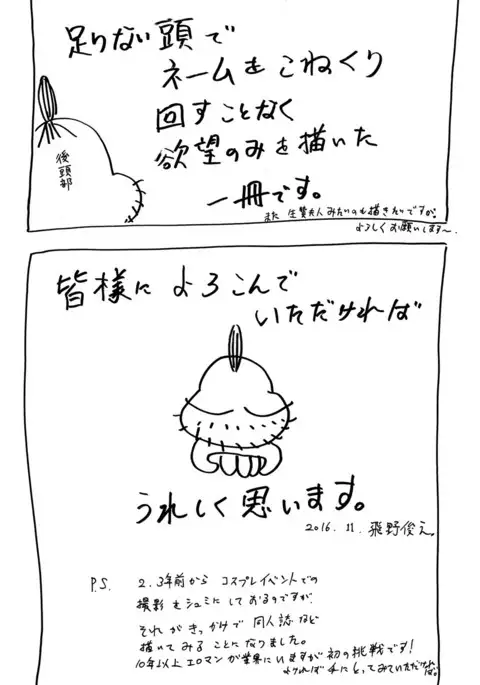 足りない頭で
ネームをこねくり
回すことなく
欲望のみを描いた
一冊です。
後頭部
また 生贄夫人みたいのも描きたいですが。
よろしくお願いします〜。
皆様によろこんで
いただければ
うれしく思います。
2016.11. 飛野俊之
P.S. 2.3年前から コスプレイベントでの
撮影をシュミにしておるのですが、
それがきっかけで同人誌など
描いてみることになりました。
10年以上エロマンガ業界にいますが初の挑戦です!
よければ手にとってみていただければ。